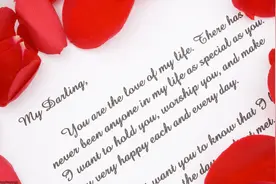 My Darling,
You are the love of my life. There has
never been anyone in my life as special as you.
I want to hold you, worship you, and make
very happy each and every day.
want you to know that I
the day met.